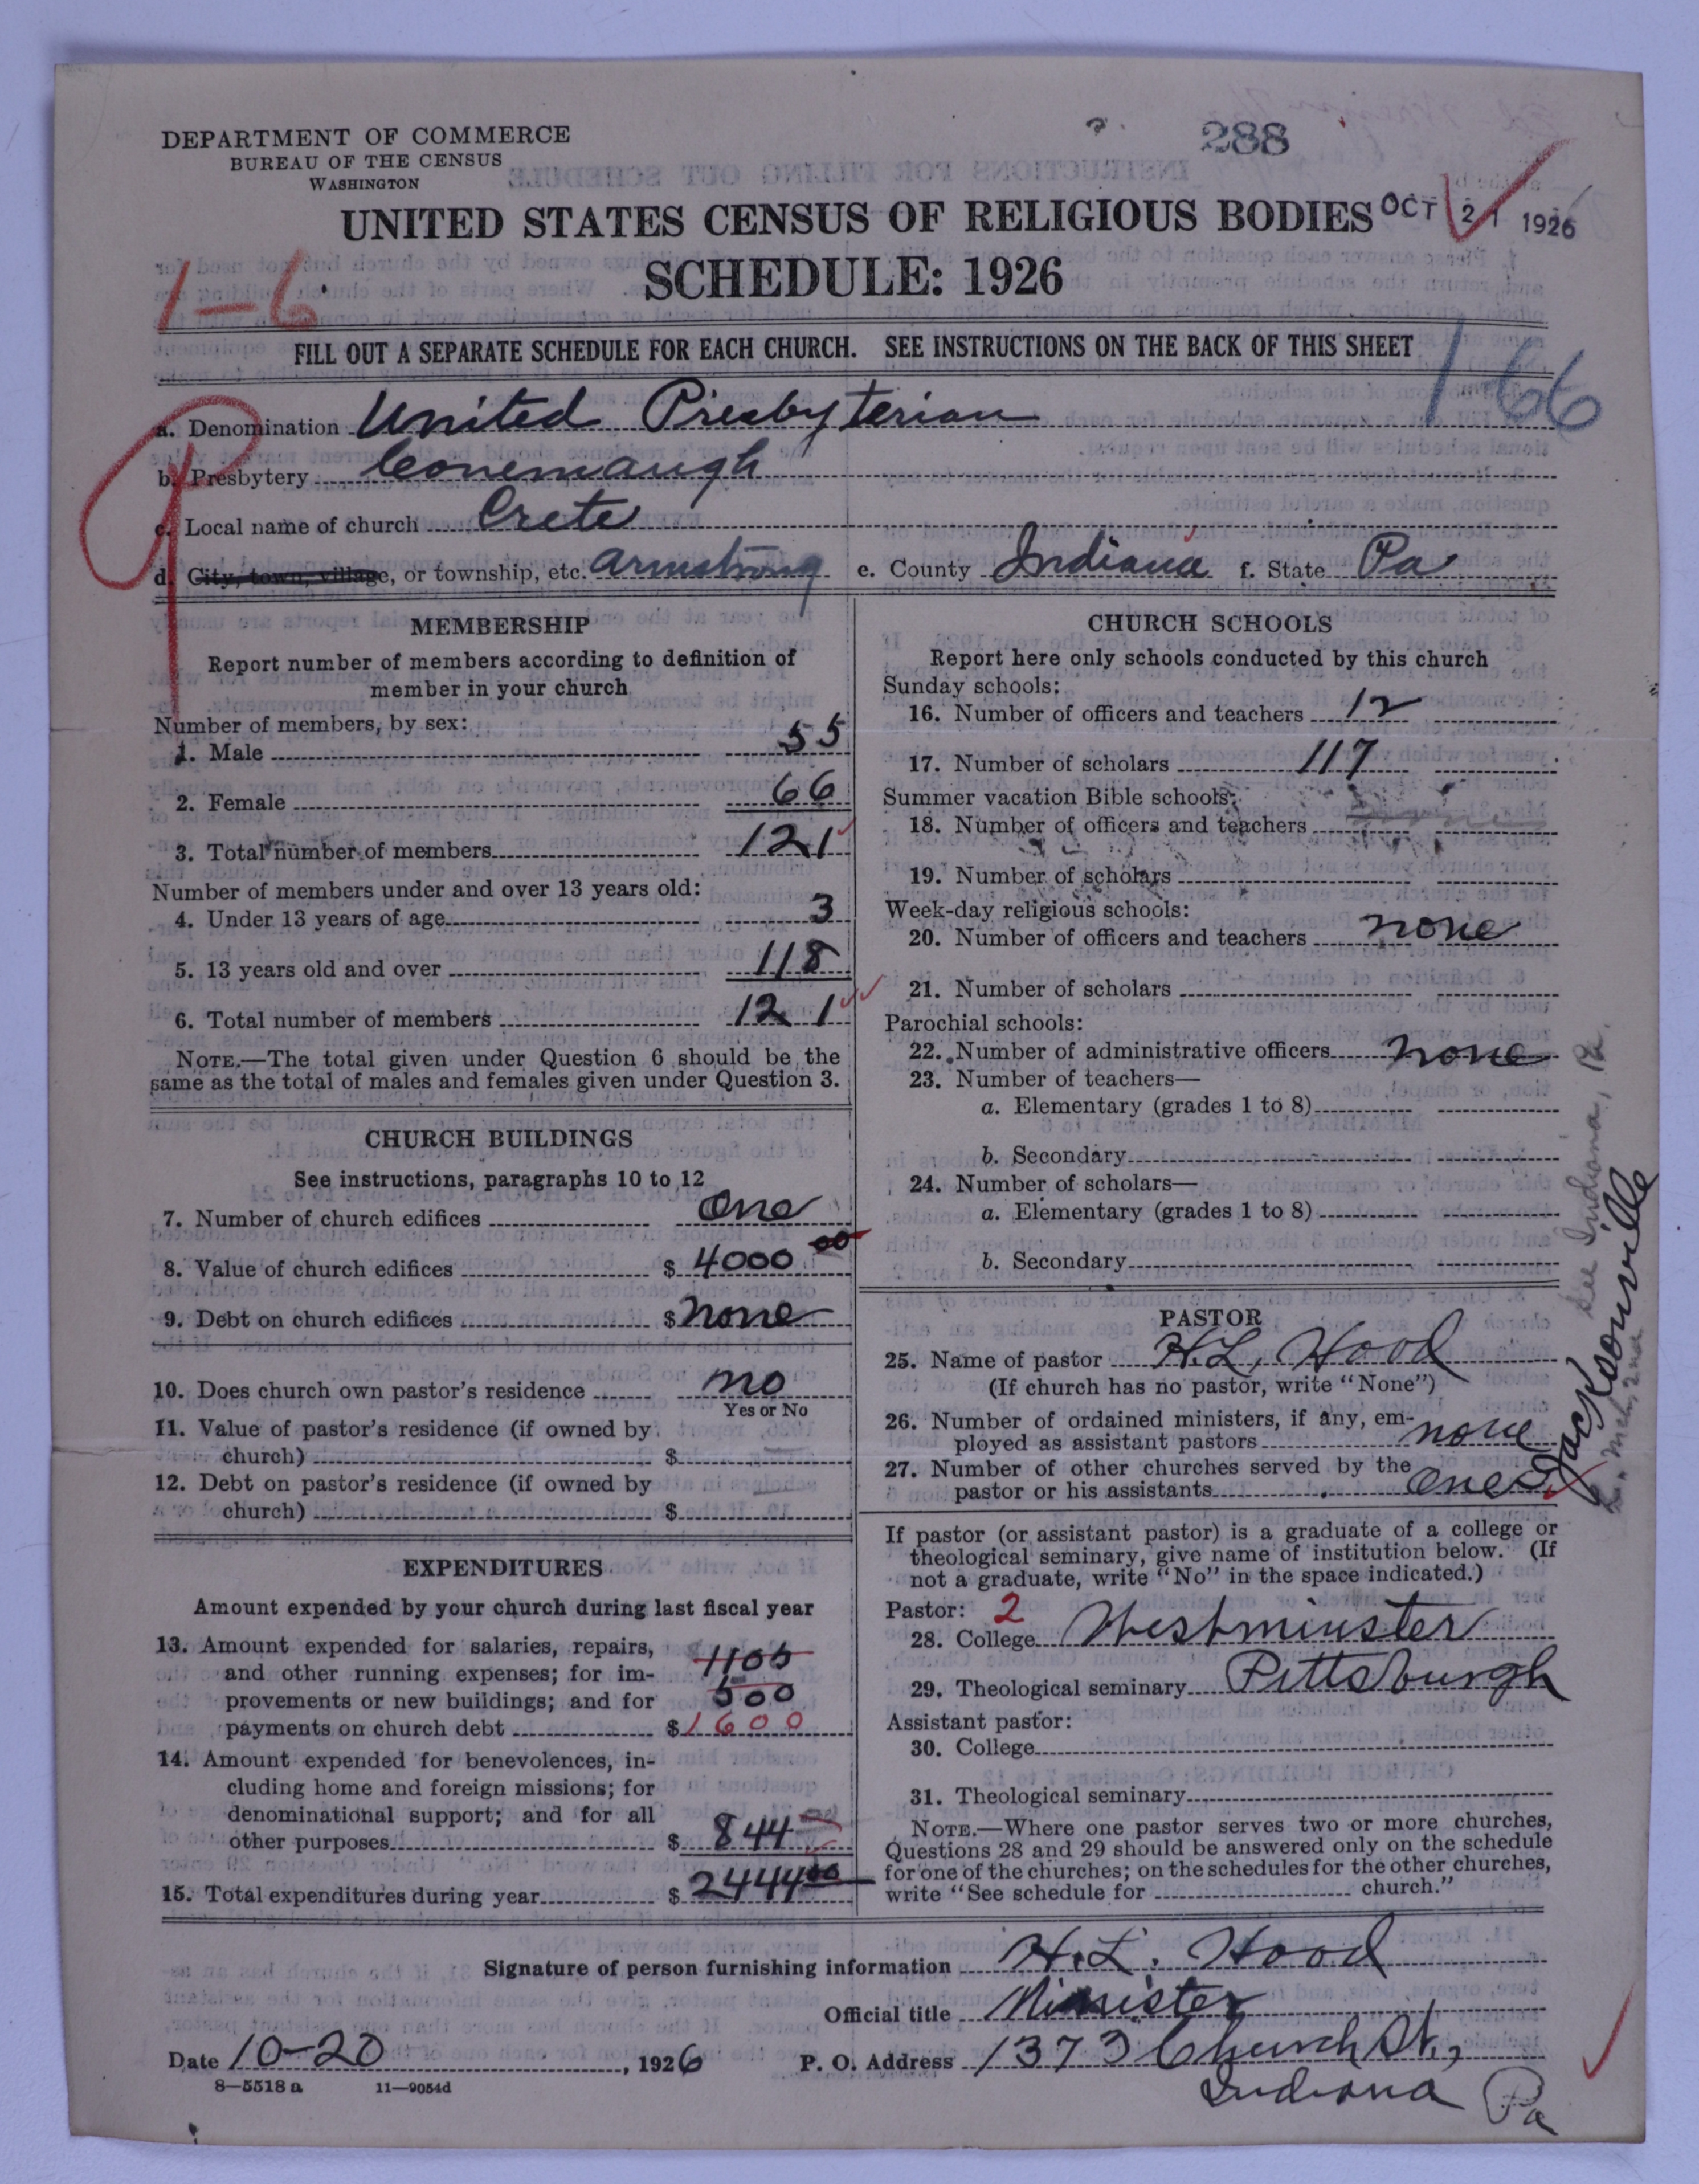 DEPARTMENT OF COMMERCE
BUREAU OF THE CENSUS
WASHINGTON
288
UNITED STATES CENSUS OF RELIGIOUS BODIES
OCT 21 1926
SCHEDULE: 1926
1-6
FILL OUT A SEPARATE SCHEDULE FOR EACH CHURCH. SEE INSTRUCTIONS ON THE BACK OF THIS SHEET
166
a. Denomination United Presbyterian
b. Presbytery Conemaugh
c. Local name of church Crete
d. City, town, village, or township, etc. Armstrong e. County Indiana f. State Pa
MEMBERSHIP
Report number of members according to definition of
member in your church
Number of members, by sex:
1. Male 55
2. Female 66
3. Total number of members 121
Number of members under and over 13 years old:
4. Under 13 years of age 3
5. 13 years old and over 118
6. Total number of members 121
NOTE.—The total given under Question 6 should be the
same as the total of males and females given under Question 3.
CHURCH BUILDINGS
See instructions, paragraphs 10 to 12
7. Number of church edifices One
8. Value of church edifices $ 4000 00
9. Debt on church edifices $ none
10. Does church own pastor's residence no
Yes or No
11. Value of pastor's residence (if owned by
church) $
12. Debt on pastor's residence (if owned by
church) $
EXPENDITURES
Amount expended by your church during last fiscal year
13. Amount expended for salaries, repairs, 1100
and other running expenses; for im-
provements or new buildings; and for 500
payments on church debt $ 1600
14. Amount expended for benevolences, in-
cluding home and foreign missions; for
denominational support; and for all
other purposes $ 844
15. Total expenditures during year $ 2444 00
CHURCH SCHOOLS
Report here only schools conducted by this church
Sunday schools:
16. Number of officers and teachers 12
17. Number of scholars 117
Summer vacation Bible schools:
18. Number of officers and teachers
19. Number of scholars
Week-day religious schools:
20. Number of officers and teachers none
21. Number of scholars
Parochial schools:
22. Number of administrative officers none
23. Number of teachers—
a. Elementary (grades 1 to 8)
b. Secondary
24. Number of scholars—
a. Elementary (grades 1 to 8)
b. Secondary
PASTOR
25. Name of pastor H.L. Hood
(If church has no pastor, write "None")
26. Number of ordained ministers, if any, em-
ployed as assistant pastors none
27. Number of other churches served by the
pastor or his assistants one
Jacksonville
See Indiana, Pa.
If pastor (or assistant pastor) is a graduate of a college or
theological seminary, give name of institution below. (If
not a graduate, write "No" in the space indicated.)
Pastor: 2
28. College Westminster
29. Theological seminary Pittsburgh
Assistant pastor:
30. College
31. Theological seminary
NOTE.—Where one pastor serves two or more churches,
Questions 28 and 29 should be answered only on the schedule
for one of the churches; on the schedules for the other churches,
write "See schedule for church."
Signature of person furnishing information H.L. Hood
Official title Minister
Date 10-20, 1926 P. O. Address 1373 Church St.,
Indiana Pa
8—5518 a 11—9054d